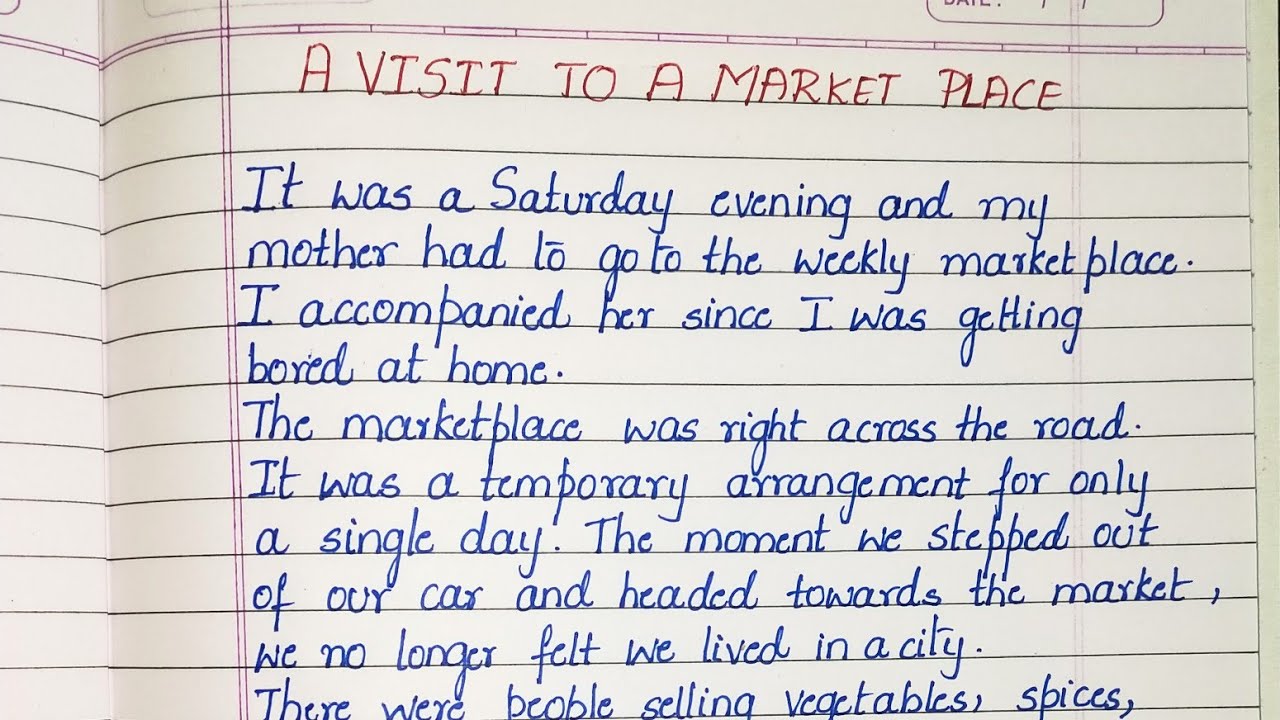 DATE: / /
A VISIT TO A MARKET PLACE
It was a Saturday evening and my
mother had to go to the weekly marketplace.
I accompanied her since I was getting
bored at home.
The marketplace was right across the road.
It was a temporary arrangement for only
a single day. The moment we stepped out
of our car and headed towards the market,
we no longer felt we lived in a city.
There were people selling vegetables, spices,